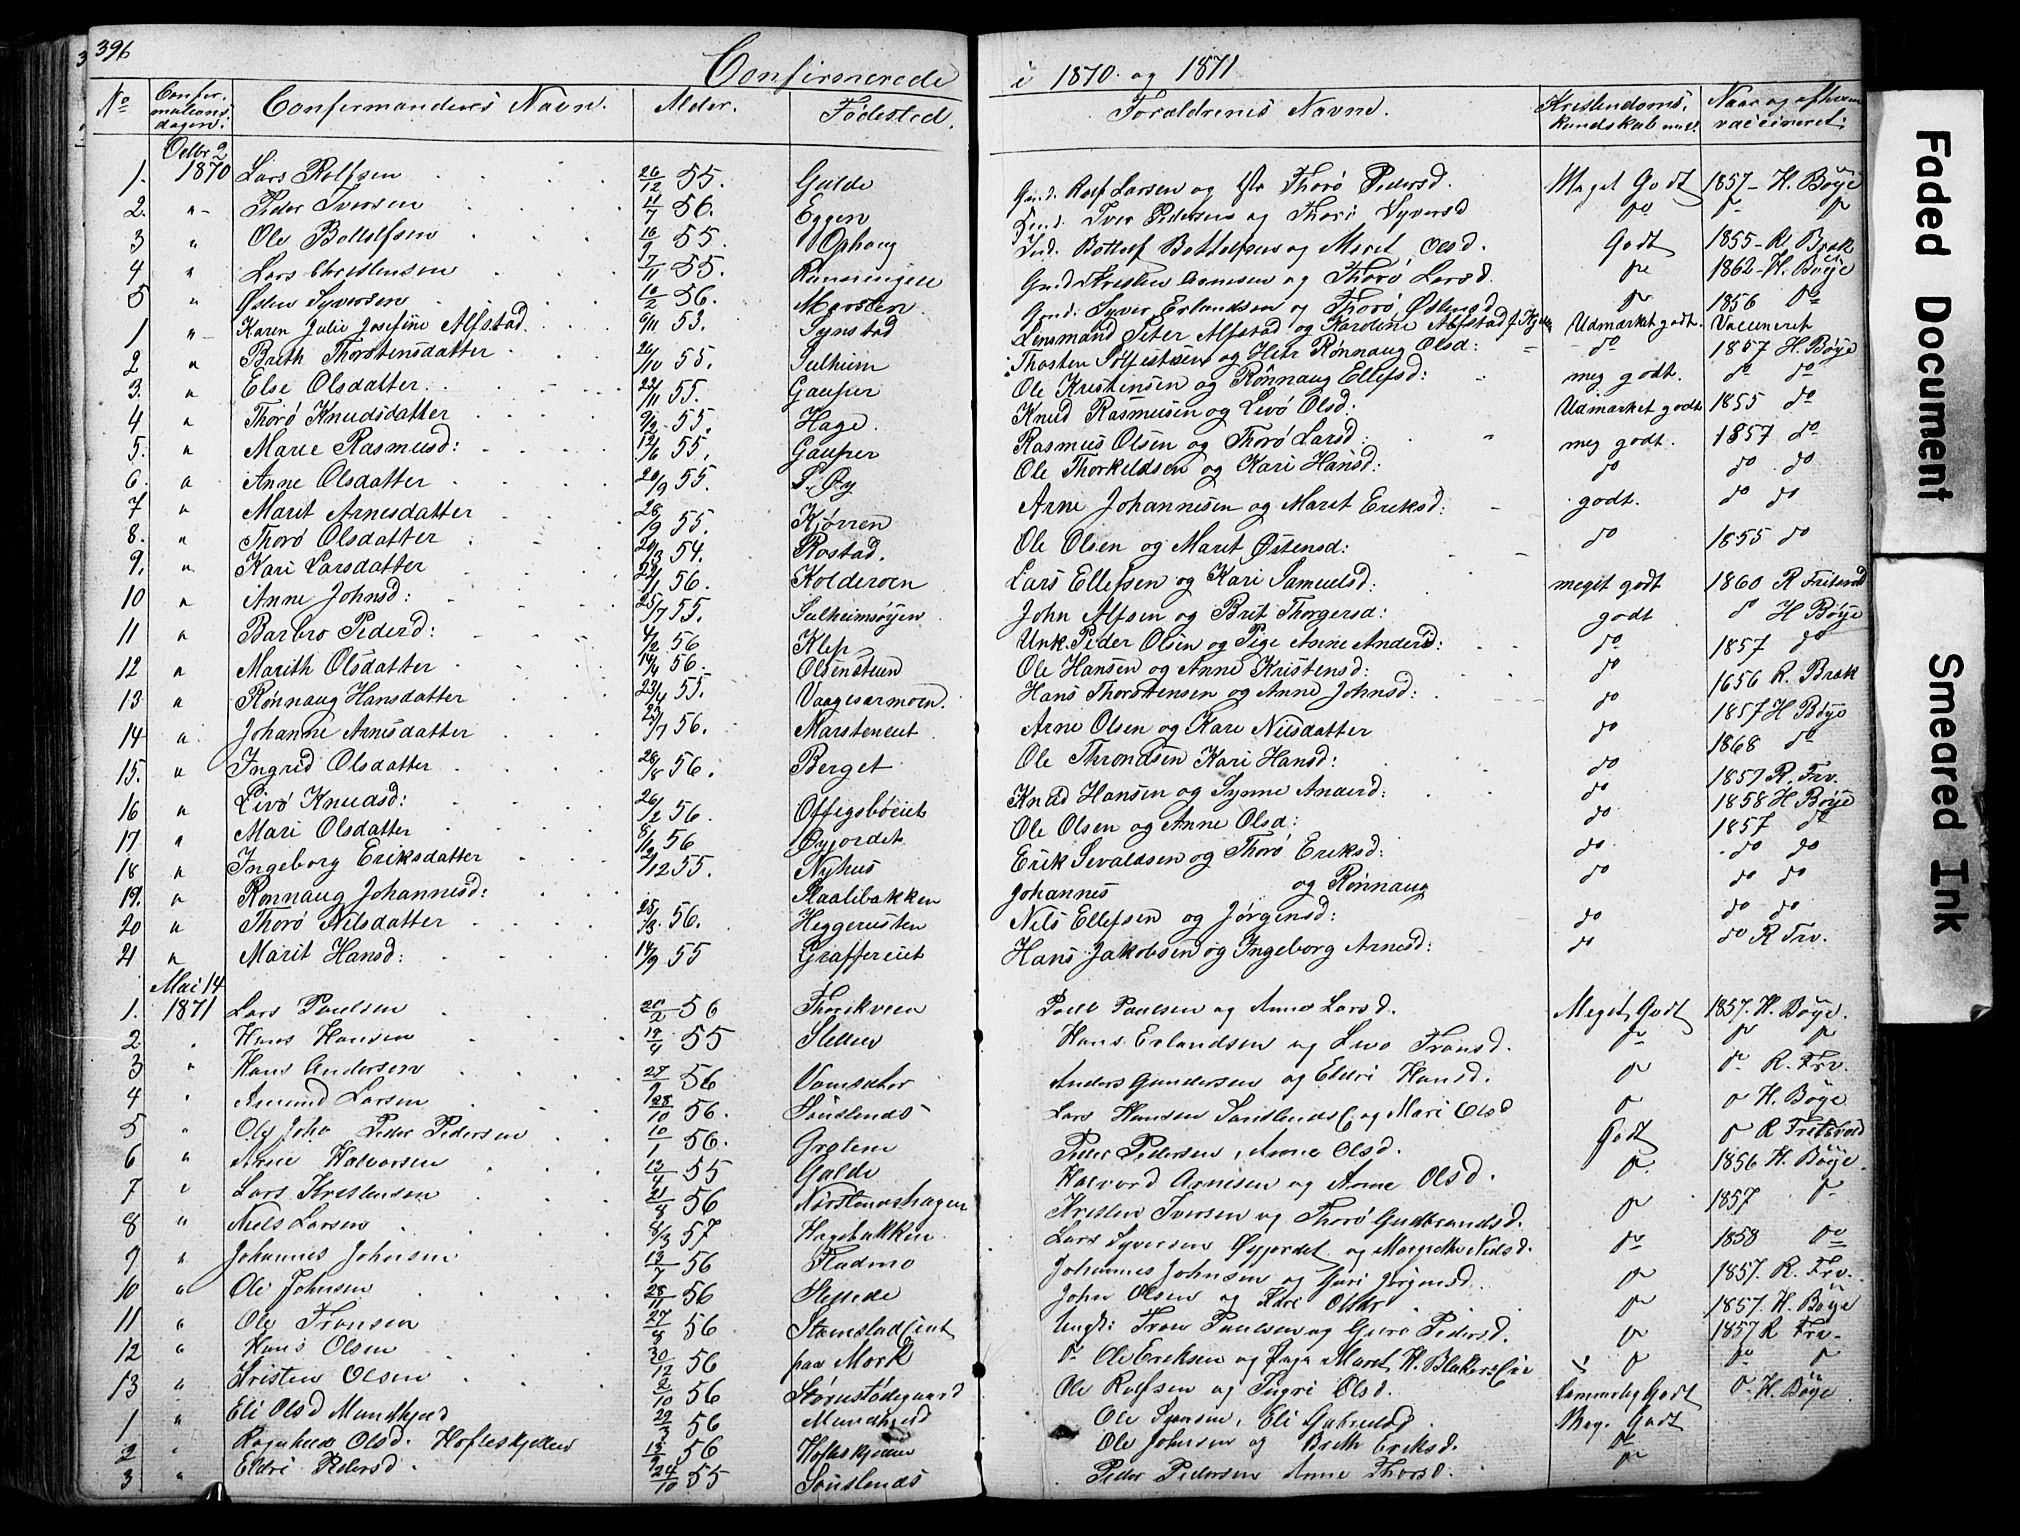 396
Confirmerede i 1870. og 1871
No Confirmationsdagen. Confirmandens Navn. Alder. Fødested. Foræld­renes Navne. Kristendoms­kundskab Naar og af hvem vaccineret.
Octbr 2
1. 1870 Lars Rolfsen 26/12 55. Galde Gmd. Rolf Larsen og Thorø Pedersd. Meget Godt 1857 - H. Bøye
2. " Peder Iversen 11/7 56. Eggen Iver Pedersen og Thorø Syversd do do do
3 " Ole Bottolfsen 16/9 55. Ophaug Ind. Bottolf Bottolfsen og Maret Olsd. Godt 1855 - R. Bræk
4 " Lars Christensen 17/11 55. Gmd. Kristen og Thorø Larsd. do 1862 - H. Bøye
5 " Østen Syversen 10/2 56. Marsten Gmd. Syver Erlandsen og Thorø Østensd do 1856 do
1 " Karen Julie Josefine Alfstad 6/11 53. Synstad Lensmand Peter Alfstad og Karoline Alfstad f. Udmærket godt. Vaccineret
2 " Brith Thorstensdatter 26/10 55. Sulheim Thosten og Rønnaug Olsd: do 1857 H. Bøye
3. " Else Olsdatter 22/11 55. Gauper Ole Kristensen og Rønnaug Ellefsd: meg godt. do do
4 " Thorø Knudsdatter 9/2 55. Hage Knud Rasmusen og Livø Olsd: Udmærket godt 1855 do
5. " Marie Rasmusd: 12/6 55. Gauper Rasmus Olsen og Thorø Larsd meg godt. 1857 do
6 " Anne Olsdatter 20/9 55. S. Øy Ole Thorkeldsen og Kari Hansd: do do do
7 " Marit Arnesdatter 28/9 55. Kjørren Arne Johannesen og Maret Eriksd: godt. do do
8. " Thorø Olsdatter 29/3 54. Rostad. Ole Olsen og Maret Østensd: do 1855 do
9. " Kari Larsdatter 22/1 56. Kolderoen Lars Ellefsen og Kari Samuelsd: meget godt 1860 R Fritsvold
10 " Anne Johnsd: 25/7 55. Sulheimsøyen John Alfsen og Brit Thorgersd: godt do H Bøye
11 " Barbro Pederd: 4/2 56 Klep Unk. Peder Olsen og Pige Anne Andersd: do 1857 do
12 " Marith Olsdatter 14/4 56. Olsensteen Ole Hansen og Anne Kristensd: do 1656 R. Bræk
13 " Rønnaug Hansdatter 23/4 55. Vaagesarmoen. Hans Thorstensen og Anne Johnsd: do 1857 H Bøye
14 " Johanne Arnesdatter 23/7 56. Marsteneiet Arne Olsen og Kare Nilsdatter do 1868 do
15. " Ingrid Olsdatter 28/8 56. Berget Ole Throndsen Kari Hansd: do 1857 R. Frv.
16 " Livø Knudsd: 26/2 56. Offigsbøeiet Knud Hansen og Synne Andersd: do 1858 H Bøye
17. " Mari Olsdatter 8/12 56 Øygjordet Ole Olsen og Anne Olsd: do 1857 do
18 " Ingeborg Eriksdatter 2/12 55. Nyhus Erik Sevaldsen og Thorø Eriksd: do do do
19. " Rønnaug Johannesd: Staalibakken Johannes og Rønnaug do do do
20 " Thorø Nilsdatter 25/8 56. Heggerusten Nils Ellefsen og Jørgensd: do do do
21 " Marit Hansd: 14/9 55 Graffereiet Hans Jakobsen og Ingeborg Arnesd: do do R Frv.
Mai 14
1. 1871 Lars Paulsen 20/2 56 Paul Paulsen og Anne Larsd. Meget Godt 1857. H. Bøye.
2 " Hans Hansen 19/4 55 Hans Erlandsen og Livø Transd. do do do
3 " Hans Andersen 27/9 56 Anders Gundersen og Eldri Hansd. do do R. Frv.
4 " Amund Larsen 28/10 56. Lars Hansen og Mari Olsd do do H. Bøye
5 " Ole Joha Peder Pedersen 10/1 56. Grotem Peder Pedersen, Anne Olsd. Godt do R Fritsvold
6 " Arne Halvorsen 13/4 55 Galde Halvord Arnesen og Anne Olsd. do 1856 H. Bøye.
7 " Lars Kristensen 21/8 56 Kristen Iversen og Thorø Gudbrandsd. do 1857 do
8 " Niels Larsen 8/3 57 Hagebakken Lars Syversen Øygjordet og Margrethe Nielsd. do 1858 do
9 " Johannes Johnsen 13/7 56 Fladmo Johannes Johnsen og Guri Jørgensd. do 1857. R. Frv.
10 " Ole Johnsen 28/11 56 John Olsen og do 1857. H. Bøye
11 " Ole Transen 27/8 56 Ungk: Tron Paulsen og Guri Pedersd. do 1857 R Frv.
12 " Hans Olsen 30/12 56 paa Mork do Ole Eriksen og Maret H. do do do
13 " Kristen Olsen 2/10 56 Ole Rolfsen og Ingri Olsd. Temmelig Godt do H. Bøye
1 " Eli Olsd Mundhjeld 29/3 56 Mundhjeld Ole Eli Meg. Godt
2 " Ragnhild Olsd. 13/9 56 Ole Johnsen og Brith Eriksd. do
3 " Eldri Pedersd. 24/10 55 Peder Pedersen Anne Thorsd. do
Faded Document
Smeared Ink